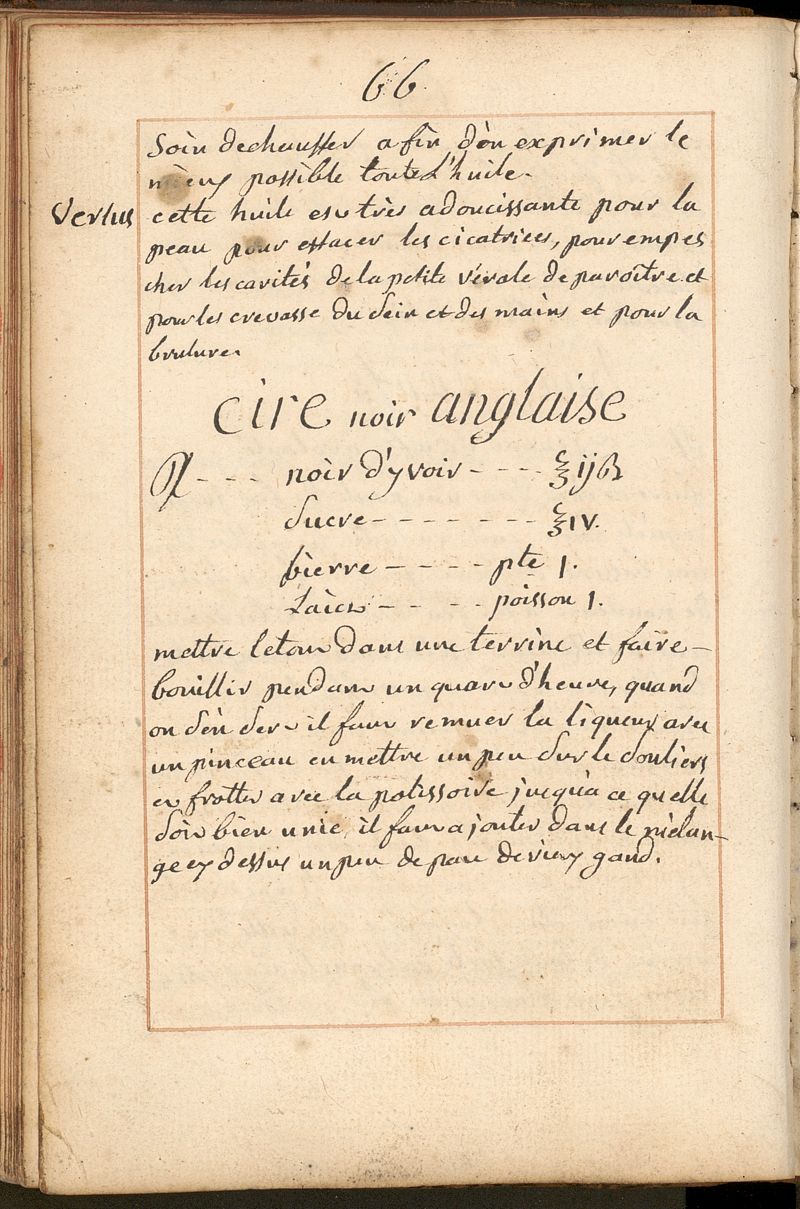 66.
Soin dechauffer afin d'en exprimer le
mieux possible toute L'huile.
Vertus
cette huile est très adoucissante pour la
peau pour effacer les cicatrices, pour empes
cher les cavités de la petite vérole de paroître et
pour les crevasse du sein et des mains et pour la
brulure.
cire noir anglaise
℞ - - - noir d'yvoir - - - - ℥ ijß
sucre - - - - - - - ℥ IV.
bierre - - - - pte 1.
- - - - poisson 1.
mettre letout dans une terrine et faire -
bouillir pendant un quart d'heure, quand
on s'en sert il faut remuer la liqueur avec
un pinceau en mettre un peu sur le souliers
et frotter avec la polissoire jusqu'a ce quelle
soit bien unie, il faut ajouter dans le mèlan-
ge cy dessus un peu de peau de vieux gand.